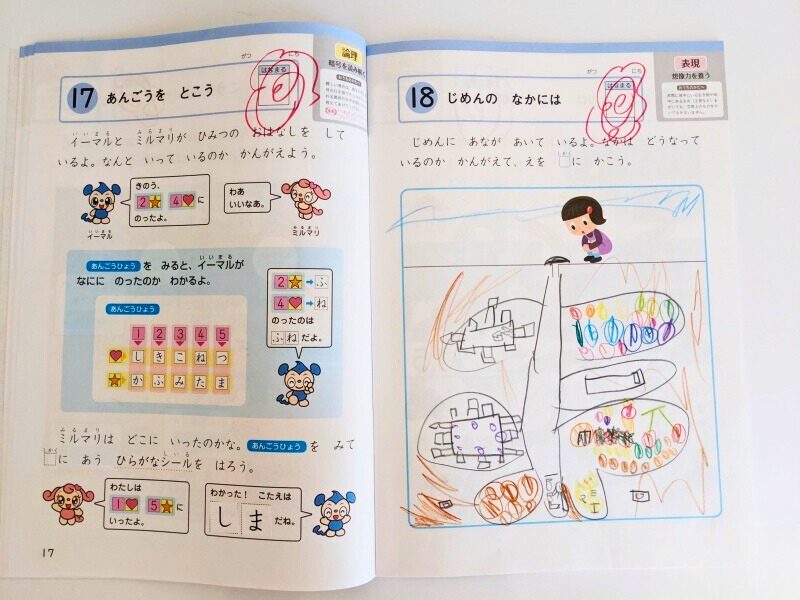 がつ にち
17 あんごうを とこう
はなまる
論理
暗号を読み解く
いいまる みるまり
イーマルと ミルマリが ひみつの おはなしを して
いるよ。なんと いって いるのか かんがえよう。
きのう、
2★ 4♥に
のったよ。
わあ
いいなあ。
いいまる
イーマル
みるまり
ミルマリ
あんごうひょう を みると、イーマルが
いいまる
なにに のったのか わかるよ。
あんごうひょう
1 2 3 4 5
♥ し き こ ね つ
★ か ふ み た ま
2★→ふ
4♥→ね
のったのは
ふねだよ。
みるまり
ミルマリは どこに いったのかな。あんごうひょう を みて
□に あう ひらがなシールを はろう。
しいる
わたしは
1♥ 5★に
いったよ。
わかった! こたえは
しま だね。
17
がつ にち
18 じめんの なかには
はなまる
表現
想像力を養う
じめんに あなが あいて いるよ。なかは どうなって
いるのか かんがえて、えを □に かこう。